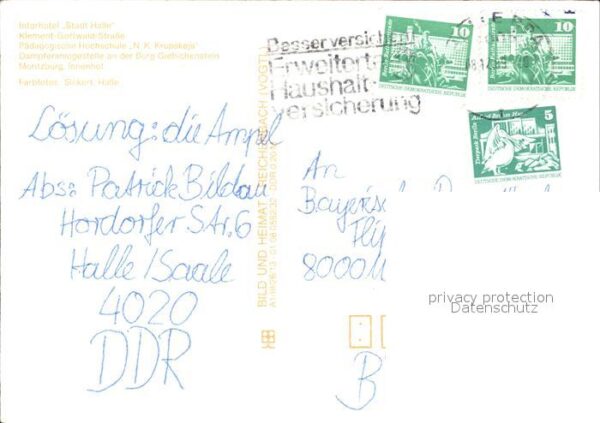 Interhotel „Stadt Halle"
Klement-Gottwald-Straße
Pädagogische Hochschule „N. K. Krupskaja"
Dampferanlegestelle an der Burg Giebichenstein
Moritzburg, Innenhof
Farbfotos: Sickert, Halle
Besser versich
Erweiterte
Haushalt-
versicherung
10
DEUTSCHE DEMOKRATISCHE REPUBLIK
10
DEUTSCHE DEMOKRATISCHE REPUBLIK
5
DEUTSCHE DEMOKRATISCHE REPUBLIK
Lösung: die Ampel
Abs: Patrick Bildau
Hordorfer Str. 6
Halle/Saale
4020
DDR
BILD UND HEIMAT REICHENBACH (VOGTL)
An
Bayerisc
8000 M
B
privacy protection
Datenschutz